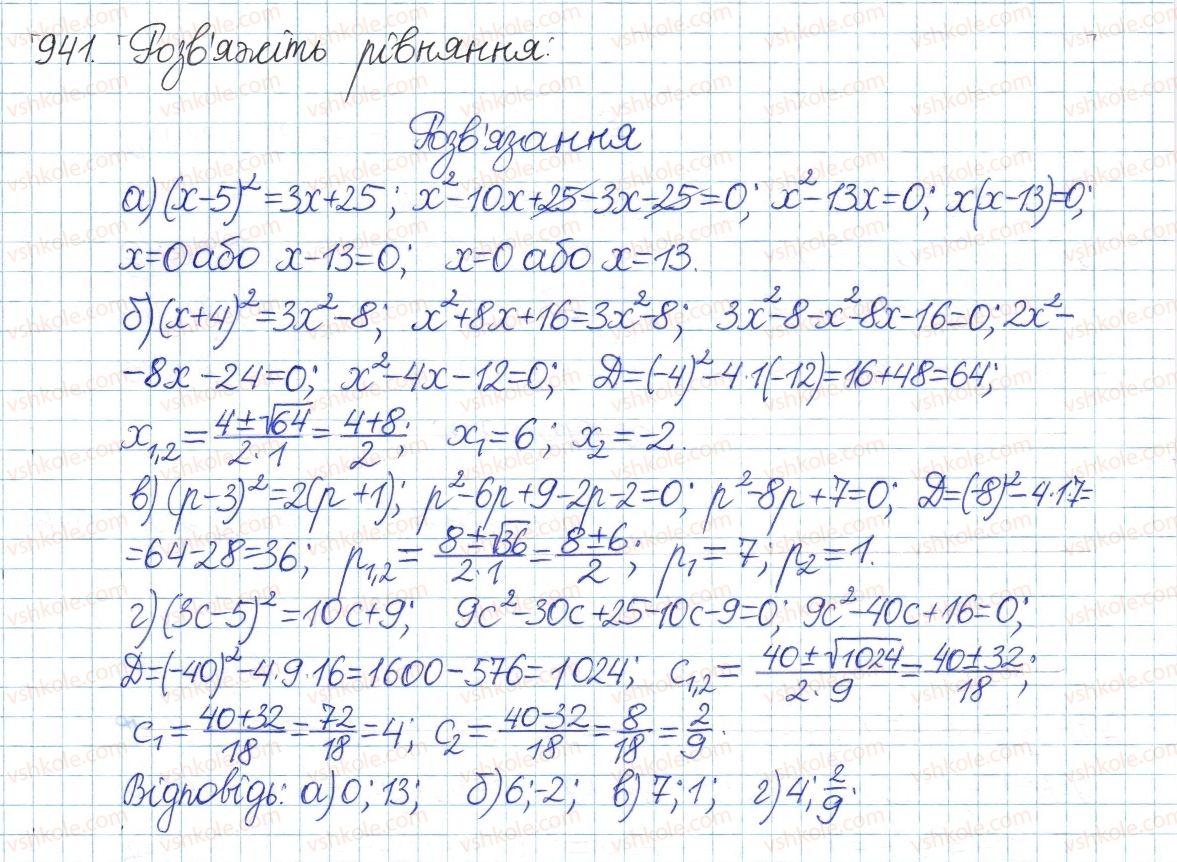 941. Розв'яжіть рівняння:
Розв'язання
а) (x-5)²=3x+25; x²-10x+25-3x-25=0; x²-13x=0; x(x-13)=0;
x=0 або x-13=0; x=0 або x=13.
б) (x+4)²=3x²-8; x²+8x+16=3x²-8; 3x²-8-x²-8x-16=0; 2x²-
-8x-24=0; x²-4x-12=0; Д=(-4)²-4·1(-12)=16+48=64;
x₁,₂=(4±√64)/(2·1)=(4+8)/2; x₁=6; x₂=-2.
в) (p-3)²=2(p+1); p²-6p+9-2p-2=0; p²-8p+7=0; Д=(-8)²-4·1·7=
=64-28=36; p₁,₂=(8±√36)/(2·1)=(8±6)/2; p₁=7; p₂=1.
г) (3c-5)²=10c+9; 9c²-30c+25-10c-9=0; 9c²-40c+16=0;
Д=(-40)²-4·9·16=1600-576=1024; c₁,₂=(40±√1024)/(2·9)=(40±32)/18;
c₁=(40+32)/18=72/18=4; c₂=(40-32)/18=8/18=2/9.
Відповідь: а) 0; 13; б) 6; -2; в) 7; 1; г) 4; 2/9.
vshkole.com